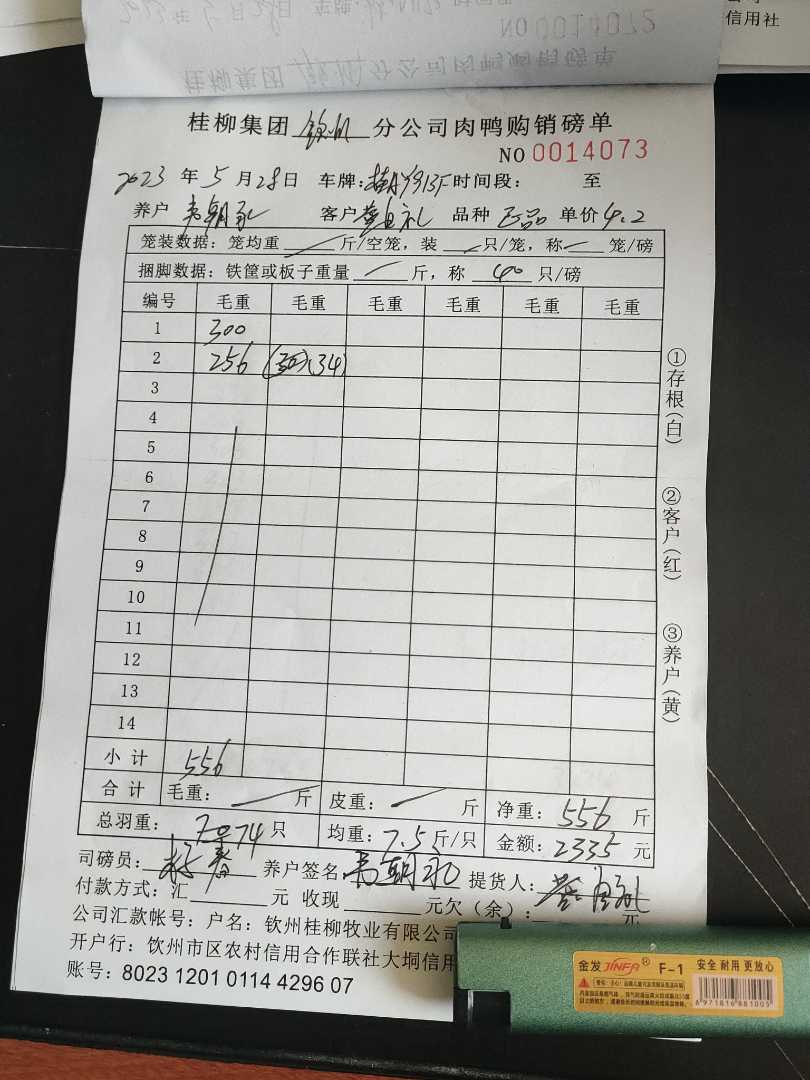 信用社
NO 0014072
桂柳集团 钦州 分公司肉鸭购销磅单
桂柳集团 钦州 分公司肉鸭购销磅单
NO 0014073
2023 年 5 月 28 日 车牌: 时间段: 至
养户 韦朝 客户 礼 品种 正品 单价 4.2
笼装数据: 笼均重 斤/空笼, 装 只/笼, 称 笼/磅
捆脚数据: 铁筐或板子重量 斤, 称 40 只/磅
编号 毛重 毛重 毛重 毛重 毛重 毛重
1 300
2 256 (34)
3
4
5
6
7
8
9
10
11
12
13
14
小计 556
合计 毛重: 斤 皮重: 斤 净重: 556 斤
总羽重: 74 只 均重: 7.5 斤/只 金额: 2335 元
司磅员: 养户签名 韦朝 提货人:
付款方式: 汇 元 收现 元欠(余): 元
公司汇款帐号: 户名: 钦州桂柳牧业有限公司
开户行: 饮州市区农村信用合作联社大垌信用
账号: 8023 1201 0114 4296 07
①存根(白)
②客户(红)
③养户(黄)
金发 JINFA® F-1 安全 耐用 更放心
6971816881005